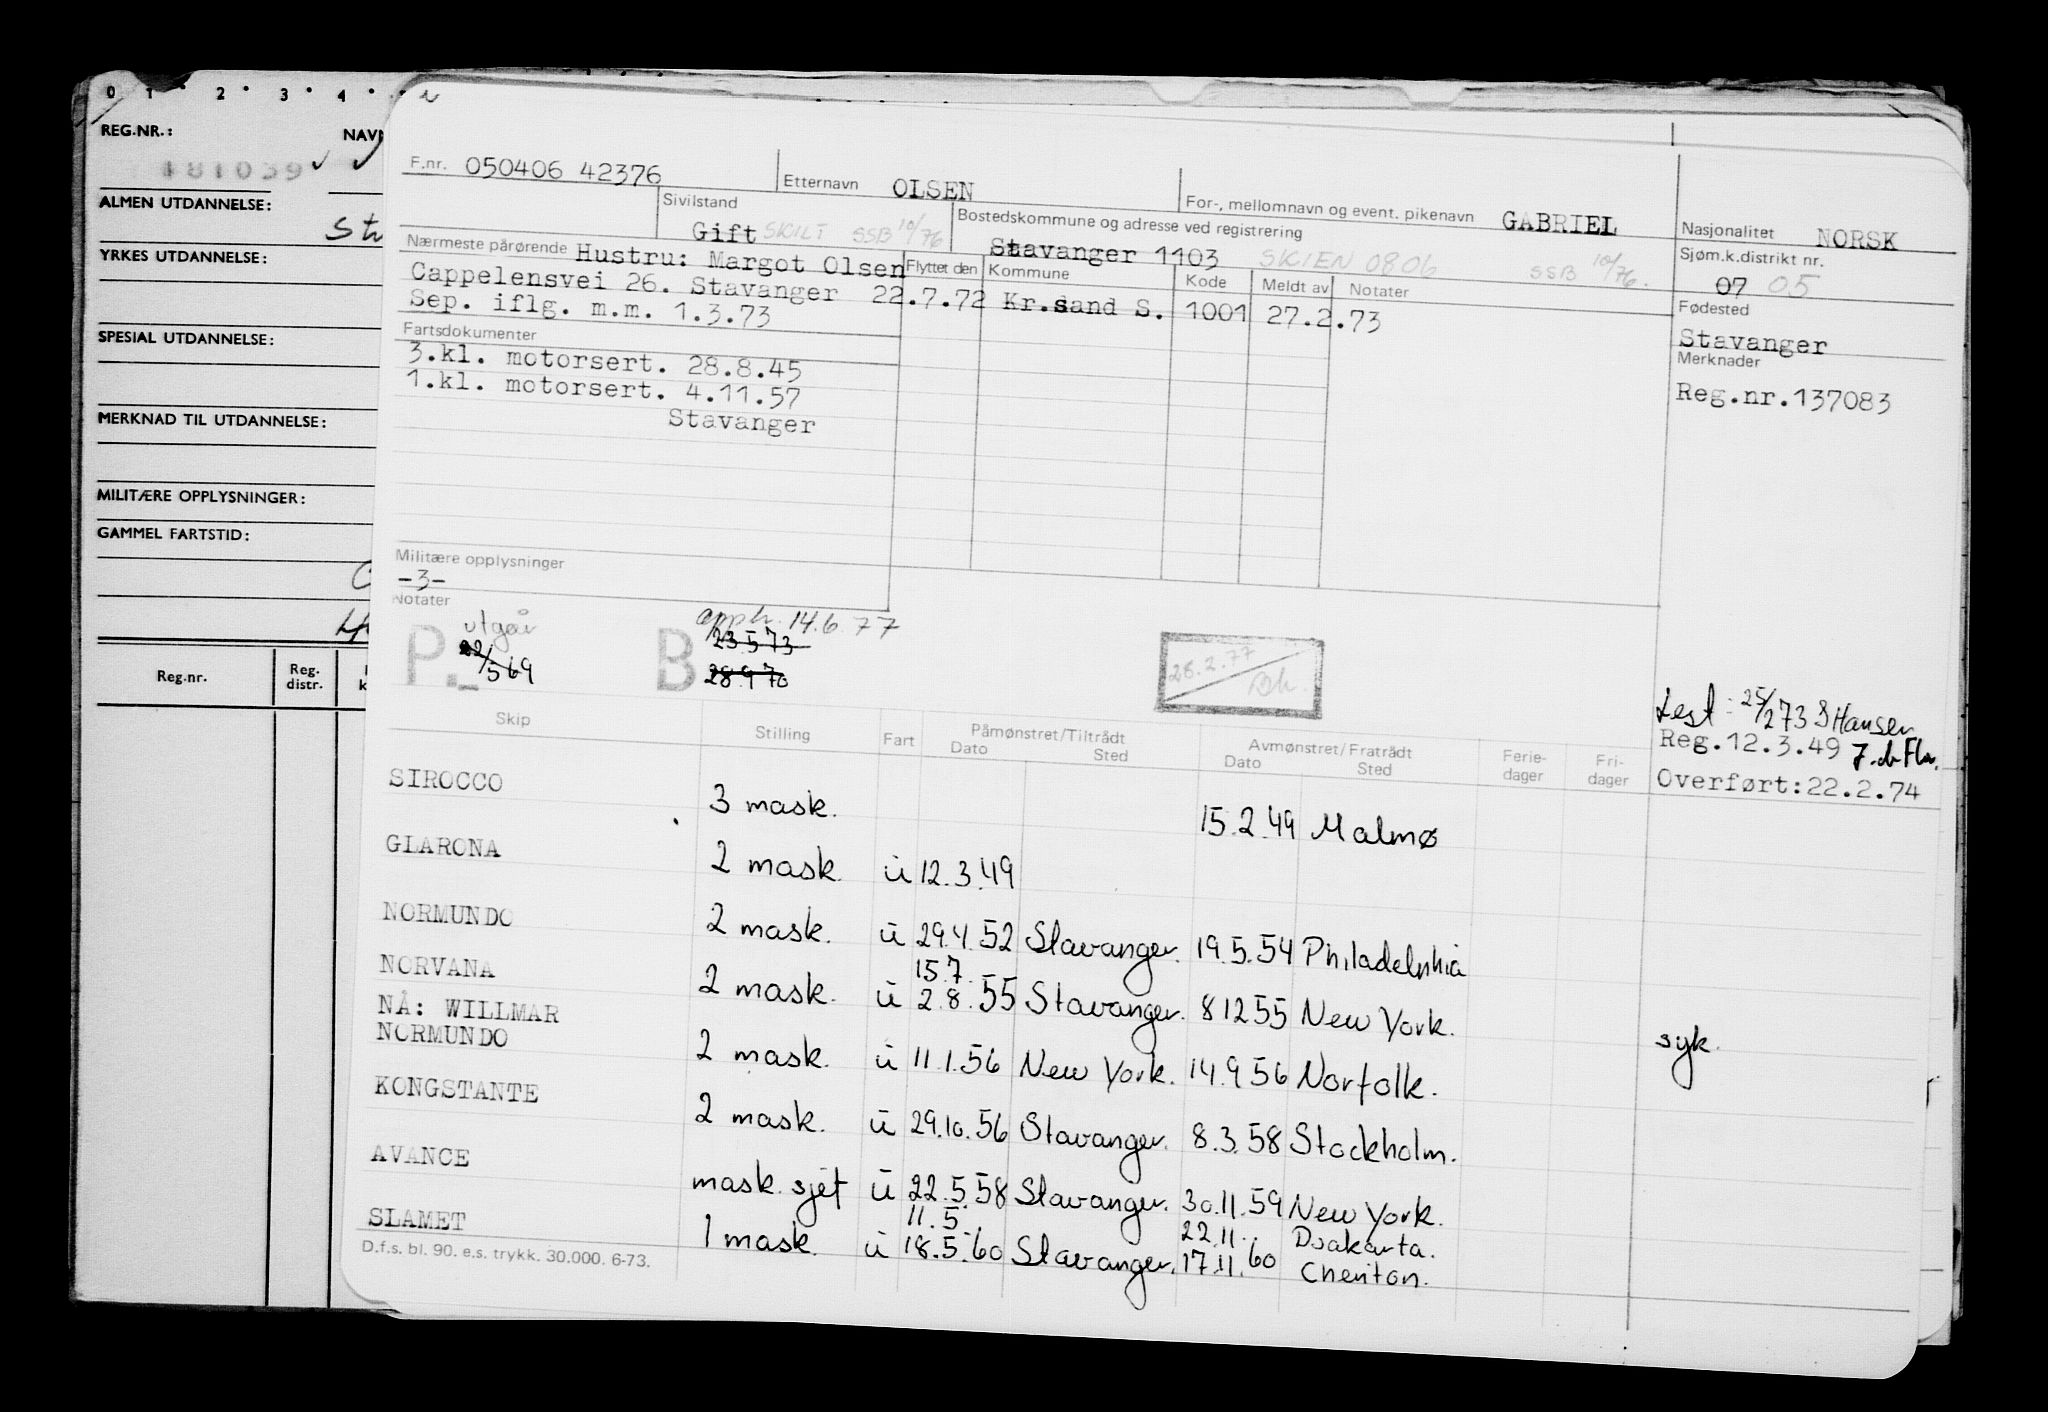 0 1 2 3 4
REG.NR.:
181039
ALMEN UTDANNELSE:
YRKES UTDANNELSE:
SPESIAL UTDANNELSE:
MERKNAD TIL UTDANNELSE:
MILITÆRE OPPLYSNINGER:
GAMMEL FARTSTID:
Reg.nr. Reg. distr.
F.nr. 050406 42376 Etternavn OLSEN For-, mellomnavn og event. pikenavn GABRIEL Nasjonalitet NORSK
Sivilstand Gift SKILT SSB 10/76 Bostedskommune og adresse ved registrering Stavanger 1103 SKIEN 0806 SSB 10/76. Sjøm.k.distrikt nr. 07 05
Nærmeste pårørende Hustru: Margot Olsen Flyttet den Kommune Kode Meldt av Notater Fødested
Cappelensvei 26. Stavanger 22.7.72 Kr.sand S. 1001 27.2.73 Stavanger
Sep. iflg. m.m. 1.3.73
Fartsdokumenter Merknader
3.kl. motorsert. 28.8.45 Reg.nr.137083
1.kl. motorsert. 4.11.57
Stavanger
Militære opplysninger
-3-
Notater
P. utgår 22/5 69 B opph. 14.6.77
23573
28.9 70
28.2.77
Lest: 25/273 S Hansen
Reg.12.3.49
Overført:22.2.74
Skip Stilling Fart Påmønstret/Tiltrådt Dato Sted Avmønstret/Fratrådt Dato Sted Ferie-dager Fri-dager
SIROCCO 3 mask. 15.2.49 Malmø
GLARONA 2 mask. ü 12.3.49
NORMUNDO 2 mask. ü 29.4.52 Stavanger. 19.5.54 Philadelphia
15.7.
NORVANA 2 mask. ü 2.8.55 Stavanger. 8 12 55 New York. syk.
NÅ: WILLMAR
NORMUNDO 2 mask. ü 11.1.56 New York. 14.9 56 Norfolk.
KONGSTANTE 2 mask. ü 29.10.56 Stavanger. 8.3.58 Stockholm.
AVANCE mask. sjef ü 22.5.58 Stavanger. 30.11.59 New York.
11.5. 22.11. Djakarta.
SLAMET 1 mask. ü 18.5.60 Stavanger. 17.11.60 Cheriton.
D.f.s. bl. 90. e.s. trykk. 30.000. 6-73.